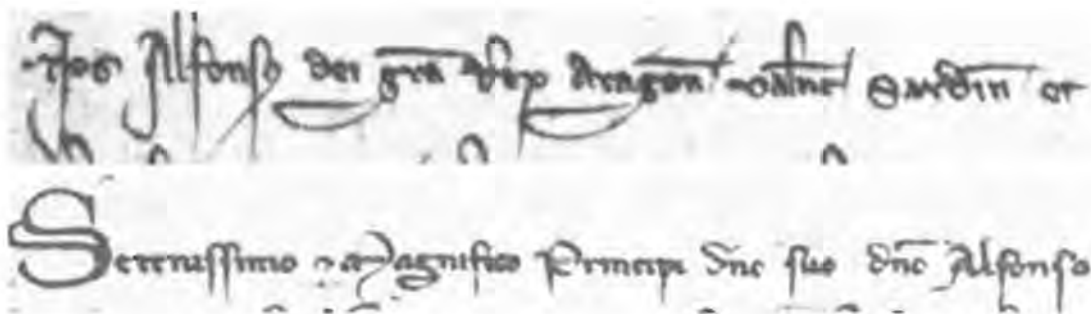 Nos Alfonsꝰ dei gr̃a Rex Aragon̄ Valn̄c Sardin̄ et
Serenissimo ac Magnifico Principi Dñe suo dñe Alfonso